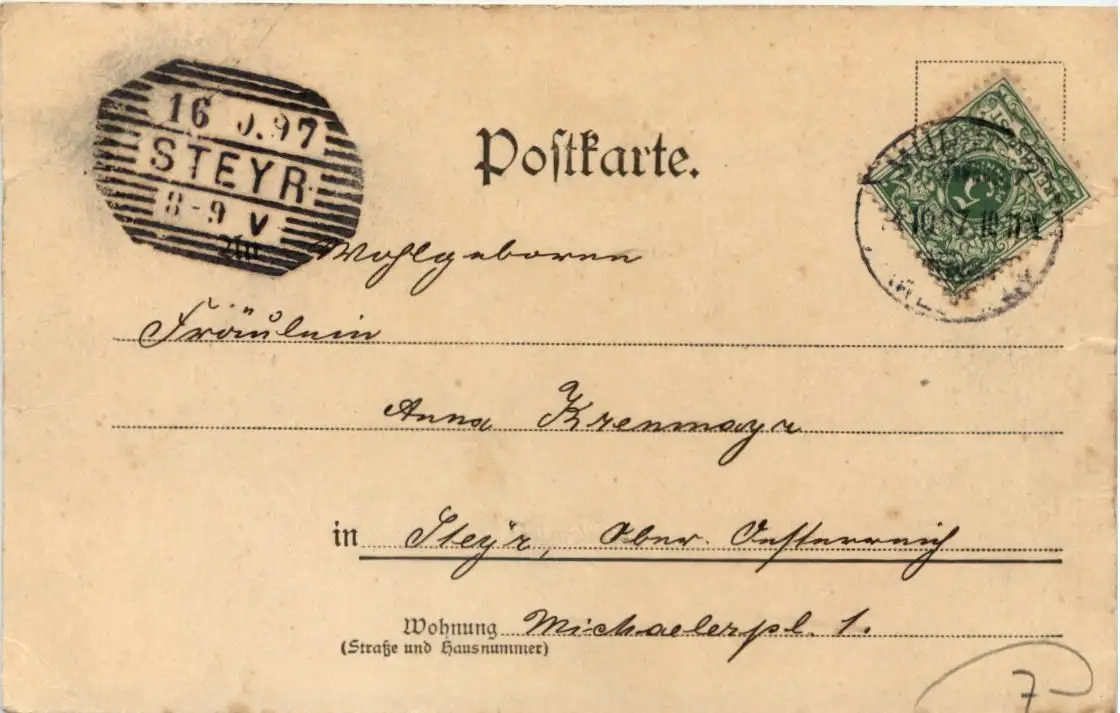 16 .97
STEYR
8-9 V
Postkarte.
An Wohlgeboren
Fräulein
Anna Krenmayr
in Steÿr, Ober. Oesterreich
Wohnung Michaelerpl. 1.
(Straße und Hausnummer)
5
7